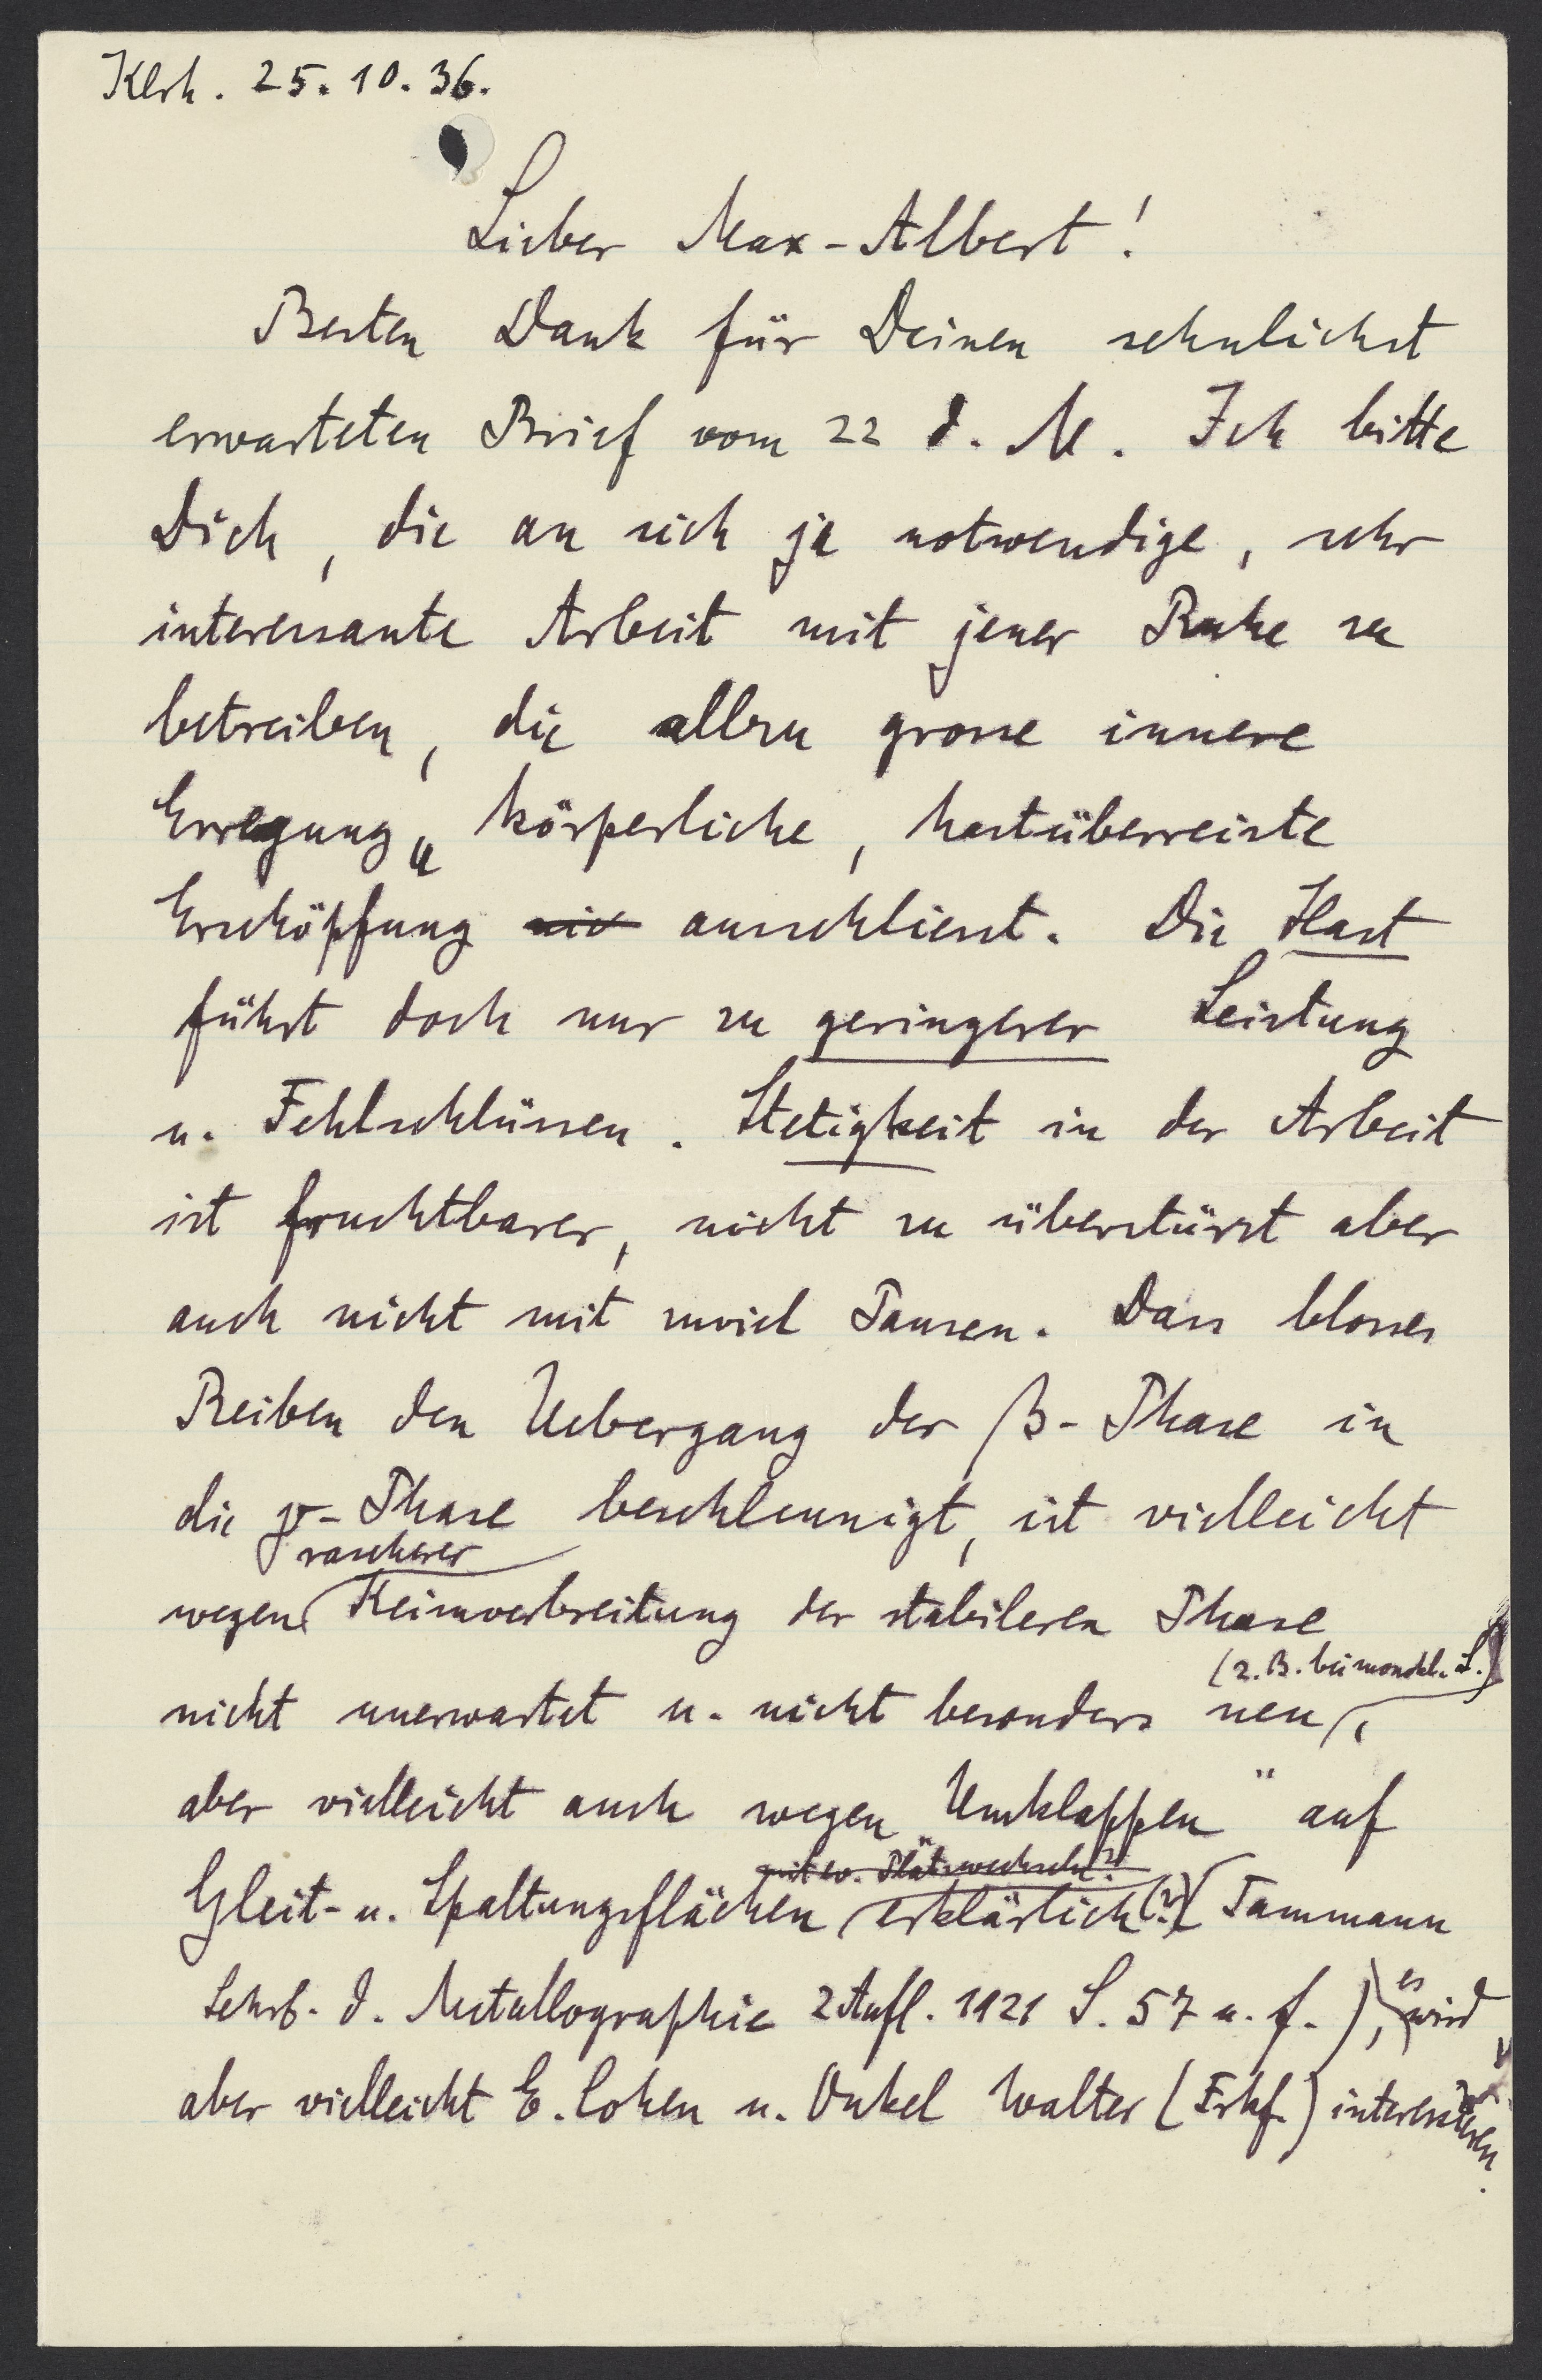 Klrh. 25.10.36.
Lieber Max-Albert!
Besten Dank für Deinen sehnlichst
erwarteten Brief vom 22 d. M. Ich bitte
Dich, die an sich ja notwendige, sehr
interessante Arbeit mit jener Ruhe zu
betreiben, die allzu grosse innere
Erregung u körperliche, hastüberreizte
Erschöpfung ausschliesst. Die Hast
führt doch nur zu geringerer Leistung
u. Fehlschlüssen. Stetigkeit in der Arbeit
ist fruchtbarer, nicht zu überstürzt aber
auch nicht mit zuviel Pausen. Dass blosses
Reiben den Uebergang der β-Phase in
die γ-Phase beschleunigt, ist vielleicht
rascherer
wegen Keimverbreitung der stabileren Phase
(z. B. bei monokl. S.)
nicht unerwartet u. nicht besonders neu,
aber vielleicht auch wegen „Umklappen“ auf
mit ev. Platzwechseln?
Gleit- u. Spaltungsflächen erklärlich(?) (Tammann
Lehrb. d. Metallographie 2 Aufl. 1921 S. 57 u. f.), es wird
aber vielleicht E. Cohen u. Onkel Walter (Frkf.) interessieren.